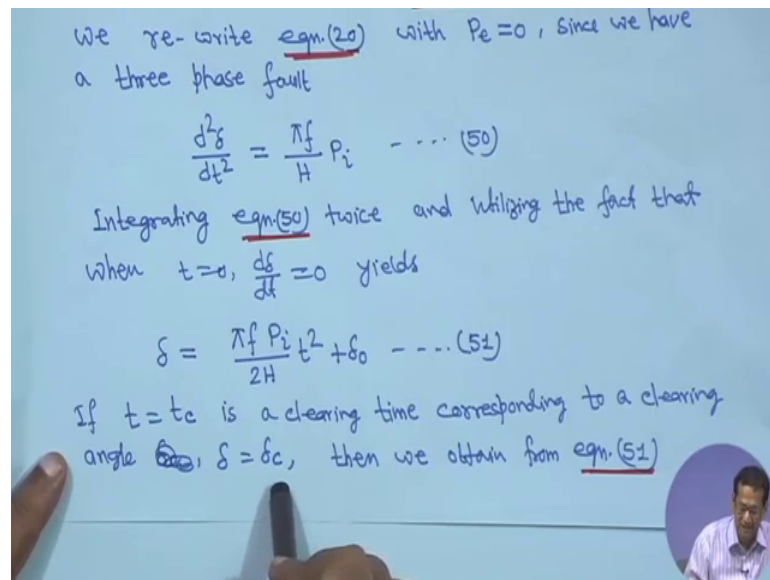 We re-write eqn.(20) with Pe=0, since we have
a three phase fault
d²δ/dt² = πf/H Pi ---- (50)
Integrating eqn.(50) twice and utilizing the fact that
when t=0, dδ/dt =0 yields
δ = πf Pi/2H t² + δ0 ---- (51)
If t=tc is a clearing time corresponding to a clearing
angle , δ = δc, then we obtain from eqn.(51)